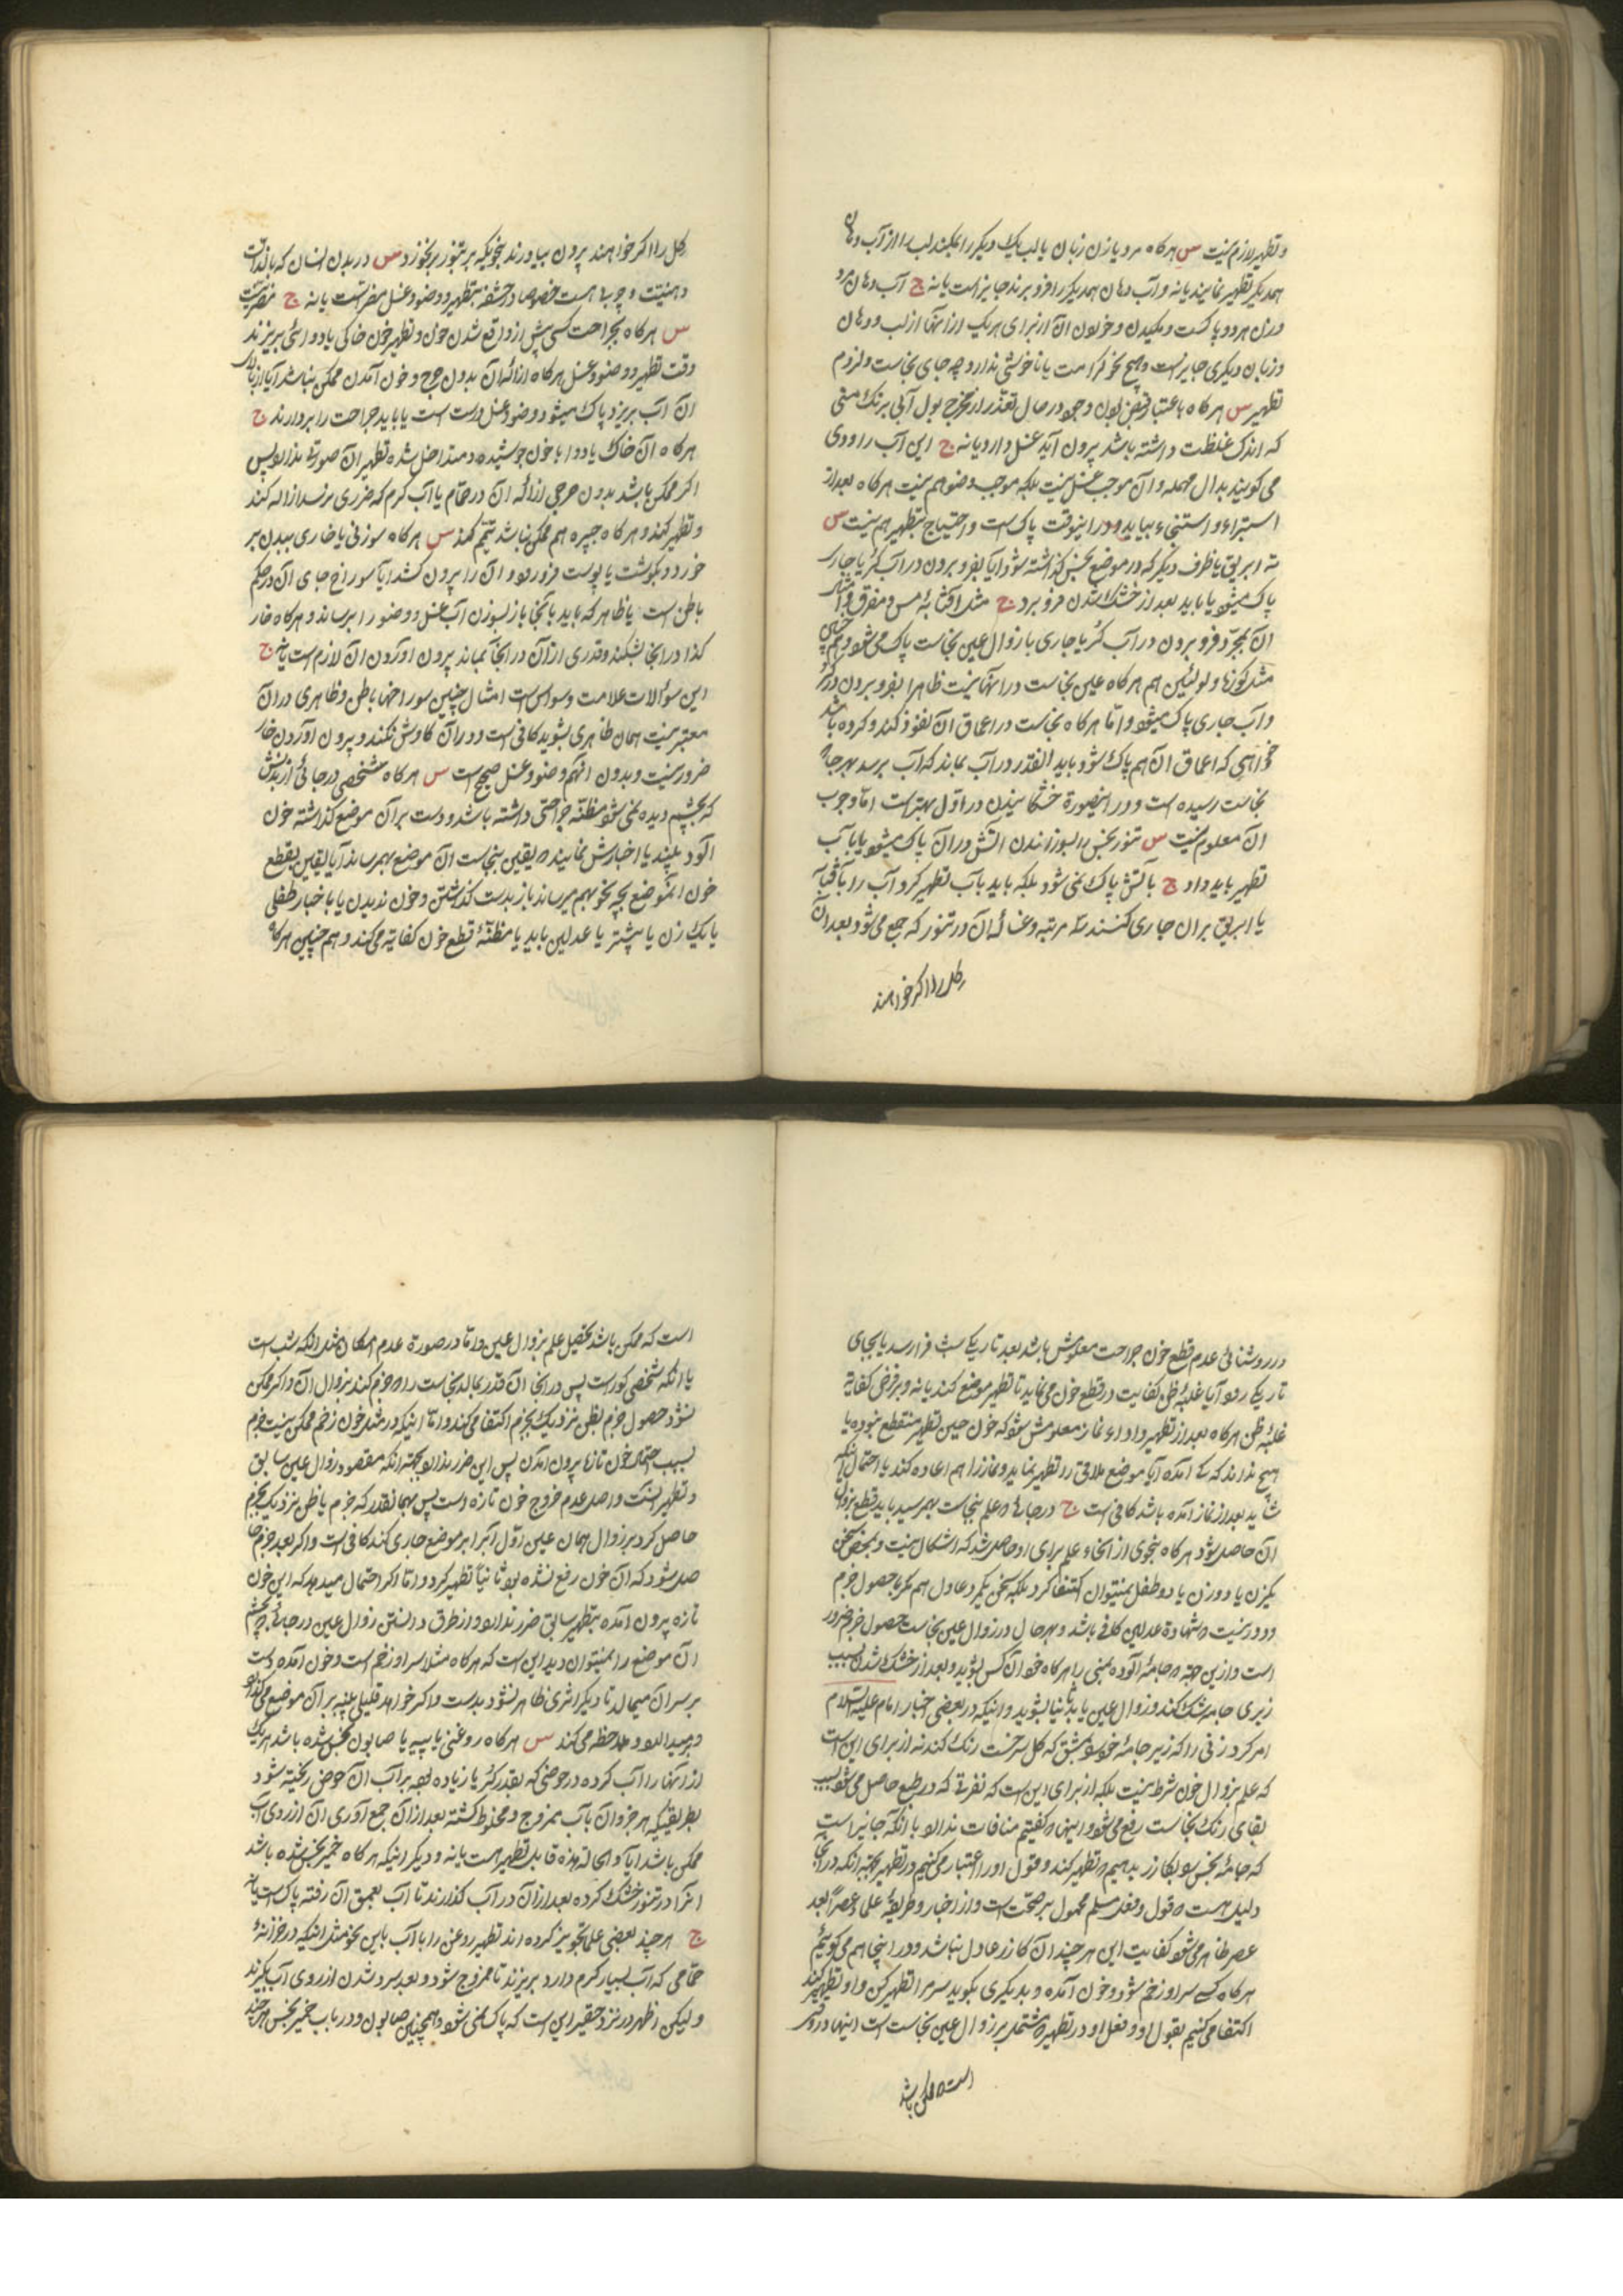 و تطهیر لازم نیست س هرکاه مرد یا زن زبان یا لب یک دیکر را بمکند لب را از آب دهان
همدیکر تطهیر نمایند یا نه و آب دهان همدیکر را فرو برند جایز است یا نه ج آب دهان مرد
و زن هر دو پاکست و مکیدن و خوردن آن از برای هر یک از اینها از لب و دهان
و زبان دیکری جایز است و هیچ نحو کراهت یا ناخوشی ندارد چه جای نجاست و لزوم
تطهیر س هرکاه باعتبار بول و جود در حال تعذر از مخرج بول آبی برنک منی
که اندک غلظت داشته باشد بیرون آید غسل دارد یا نه ج این آب را ودی
می کویند بدال مهمله و آن موجب غسل نیست بلکه موجب وضو هم نیست هرکاه بعد از
استبراء و استنجاء بیاید و در اینوقت پاک است و احتیاج بتطهیر هم نیست س
ته ابریق یا ظرف دیکر که در موضع نجس کذاشته شود آیا بفرو بردن در آب کر یا جاری
پاک میشود یا باید بعد از خشک شدن فرو برد ج مثل آفتابه مس و مفرق و امثال
آن بمجرد فرو بردن در آب کر یا جاری با زوال عین نجاست پاک می شود و هم چنین
مثل کوزها و لولئین هم هرکاه عین نجاست در آنها نیست ظاهرا بفرو بردن در کر
و آب جاری پاک میشود و اما هرکاه نجاست در اعماق آن نفوذ کند و کرده باشد
خواهی که اعماق آن هم پاک شود باید آنقدر در آب بماند که آب برسد بهر جا که
نجاست رسیده است و در اینصورة خشکانیدن در اول بهتر است اما وجوب
آن معلوم نیست س تنور نجس بسوزاندن آتش در آن پاک میشود یا بآب
تطهیر باید داد ج بآتش پاک نمی شود بلکه باید بآب تطهیر کرد و آب را بآفتابه
یا ابریق بر آن جاری کنند سه مرتبه و غساله آن در تنور که جمع می شود بعد از آن
کل را اکر خواهند
کل را اکر خواهند بیرون بیاورند بنحویکه بر تنور برنخورد س در بدن انسان که بالذات
دهنیت و چربی هست خصوصا در حشفه بتطهیر و وضو و غسل مضر است یا نه ج مضر نیست
س هرکاه بجراحت کسی پیش از واقع شدن خون و تطهیر خون خاکی یا دوائی بریزند
وقت تطهیر و وضو و غسل هرکاه ازاله آن بدون جرح و خون آمدن ممکن نباشد آیا از بالای
آن آب بریزد پاک میشود و وضو و غسل درست است یا باید جراحت را بردارند ج
هرکاه آن خاک یا دوا با خون جوشیده و متداخل شده تطهیر آن صورة ندارد پس
اکر ممکن باشد بدون حرجی ازاله آن در حمام یا آب کرم که ضرری نرسد ازاله کند
و تطهیر کند و هرکاه جبیره هم ممکن نباشد تیمم کند س هرکاه سوزنی یا خاری ببدن بر
خورد و بکوشت یا پوست فرو رود و آن را بیرون کشد آیا سوراخ جای آن در حکم
باطن است یا ظاهر که باید بآنجا باز بسوزن آب غسل و وضو را برساند و هرکاه خار
کذا در آنجا بشکند و قدری از آن در آنجا بماند بیرون آوردن آن لازم است یا نه ج
این سؤالات علامت وسواس است امثال چنین سوراخها باطن و ظاهری در آن
معتبر نیست همان ظاهری بشوید کافی است و در آن کاوش نکند و بیرون آوردن خار
ضرور نیست و بدون آنهم وضو و غسل صحیح است س هرکاه شخصی در جائی از بدنش
که بچشم دیده نمی شود مظنه جراحتی داشته باشد و دست بر آن موضع کذاشته خون
آلود ببیند یا اخبارش نمایند که یقین بنجاست آن موضع بهم رساند آیا یقین بقطع
خون آنموضع بچه نحو بهم میرساند باز بدست کذاشتن و خون ندیدن یا باخبار طفلی
یا یک زن یا بیشتر یا عدلین باید یا مظنه قطع خون کفایه می کند و هم چنین هرکاه
در روشنائی عدم قطع خون جراحت معلومش باشد بعد تاریکی شب فرا رسد یا بجای
تاریک رود آیا غلبه ظن کفایت در قطع خون می نماید تا تطهیر موضع کند یا نه و بر فرض کفایة
غلبه ظن هرکاه بعد از تطهیر و اداء نماز معلومش شود که خون حین تطهیر منقطع نبوده یا
هیچ نداند که کی آمده آیا موضع ملاقی را تطهیر نماید و نماز را هم اعاده کند یا احتمال اینکه
شاید بعد از نماز آمده باشد کافی است ج در جائی که علم بنجاست بهم رسید باید قطع بزوال
آن حاصل شود هرکاه بنحوی از انحاء علم برای او حاصل شد که اشکال نیست و بمحض سخن
یکزن یا دو زن یا دو طفل نمیتوان اکتفا کرد بلکه سخن یکمرد عادل هم مکر با حصول جزم
و دور نیست که شهادة عدلین کافی باشد و بهرحال در زوال عین نجاست حصول جزم ضرور
است و از این جهة که جامه آلوده بمنی را هرکاه خود آن کس بشوید و بعد از خشک شدن بسبب
زبری جامه شک کند در زوال عین باید ثانیا بشوید و اینکه در بعضی اخبار امام علیه السلام
امر کرد زنی را که زیر جامه خود را بمشق که کل سرخست رنک کند نه از برای این است
که علم بزوال خون شرط نیست بلکه از برای این است که نفرتی که در طبع حاصل می شود بسبب
بقای رنک نجاست رفع می شود و اینها که کفتیم منافات ندارد با آنکه جایز است
که جامه نجس را بکازر بدهیم که تطهیر کند و قول او را اعتبار می کنیم در تطهیر بجهة آنکه در آنجا
دلیل هست که قول و فعل مسلم محمول بر صحت است و از اخبار و طریقه علماء عصرا بعد
عصر ظاهر می شود کفایت این هر چند آن کازر عادل نباشد و در اینجا هم می کوئیم
هرکاه کسی سر او زخم شود و خون آمده و بدیکری بکوید سر مرا تطهیر کن و او تطهیر کند
اکتفا می کنیم بقول او و فعل او در تطهیر که مشتمل بر زوال عین نجاست است اینها در وقتی
است که ممکن باشد
است که ممکن باشد تحصیل علم بزوال عین و اما در صورة عدم امکان مثل آنکه شب است
یا آنکه شخصی کور است پس در آنجا آن قدر بمالد نجاست را که جزم کند بزوال آن و اکر ممکن
نشود حصول جزم بظن نزدیک بجزم اکتفا می کند و اما اینکه در مثل خون زخم ممکن نیست جزم
بسبب احتمال خون تازه بیرون آمدن پس این ضرر ندارد بجهة آنکه مقصود زوال عین سابق
و تطهیر آنست و اصل عدم خروج خون تازه است پس بهمانقدر که جزم یا ظن نزدیک بجزم
حاصل کرد بزوال همان عین اول آب را بر موضع جاری کند کافی است و اکر بعد جزم حا
صل شود که آن خون رفع نشده بود ثانیا تطهیر کرد و اما اکر احتمال میدهد که این خون
تازه بیرون آمده بتطهیر سابق ضرر ندارد و از طرق دانستن زوال عین در جائی که بچشم
آن موضع را نمیتوان دید این است که هرکاه مثلا سر او زخم است و خون آمده دست
بر سر آن میمالد تا دیکر اثری ظاهر نشود بدست و اکر خواهد قلیلی پنبه بر آن موضع می کذارد
و برمیدارد و ملاحظه می کند س هرکاه روغنی یا پیه یا صابون نجس شده باشد هر یک
از آنها را آب کرده در حوضی که بقدر کر یا زیاده بود بر آب آن حوض ریخته شود
بطریقیکه هر جزو آن بآب ممزوج و مخلوط کشته بعد از آن جمع آوری آن از روی آب
ممکن باشد آیا و الحالة هذه قابل تطهیر هست یا نه و دیکر اینکه هرکاه خمیر نجس شده باشد
آنرا در تنور خشک کرده بعد از آن در آب کذارند تا آب بعمق آن رفته پاک است یا نه
ج هر چند بعضی علما تجویز کرده اند تطهیر روغن را با آب باین نحو مثل اینکه در خزانه
حمامی که آب بسیار کرم دارد بریزند تا ممزوج شود و بعد سرد شدن از روی آب بکیرند
و لیکن اظهر در نزد حقیر این است که پاک نمی شود و همچنین صابون و در باب خمیر نجس هر چند